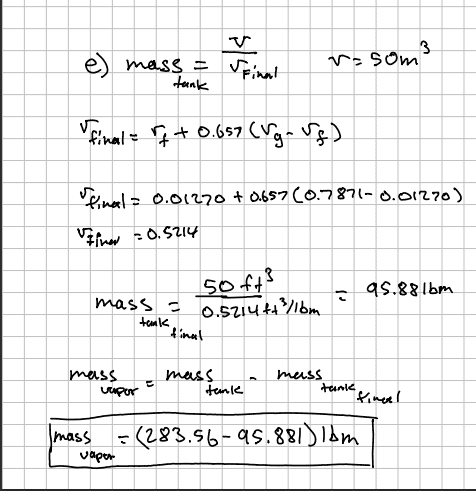 e) mass tank = V / v final V = 50 m³
v final = vf + 0.657 (vg - vf)
v final = 0.01270 + 0.657 (0.7871 - 0.01270)
v final = 0.5214
mass tank final = 50 ft³ / 0.5214 ft³/lbm = 95.881bm
mass vapor = mass tank - mass tank final
mass vapor = (283.56 - 95.881) lbm